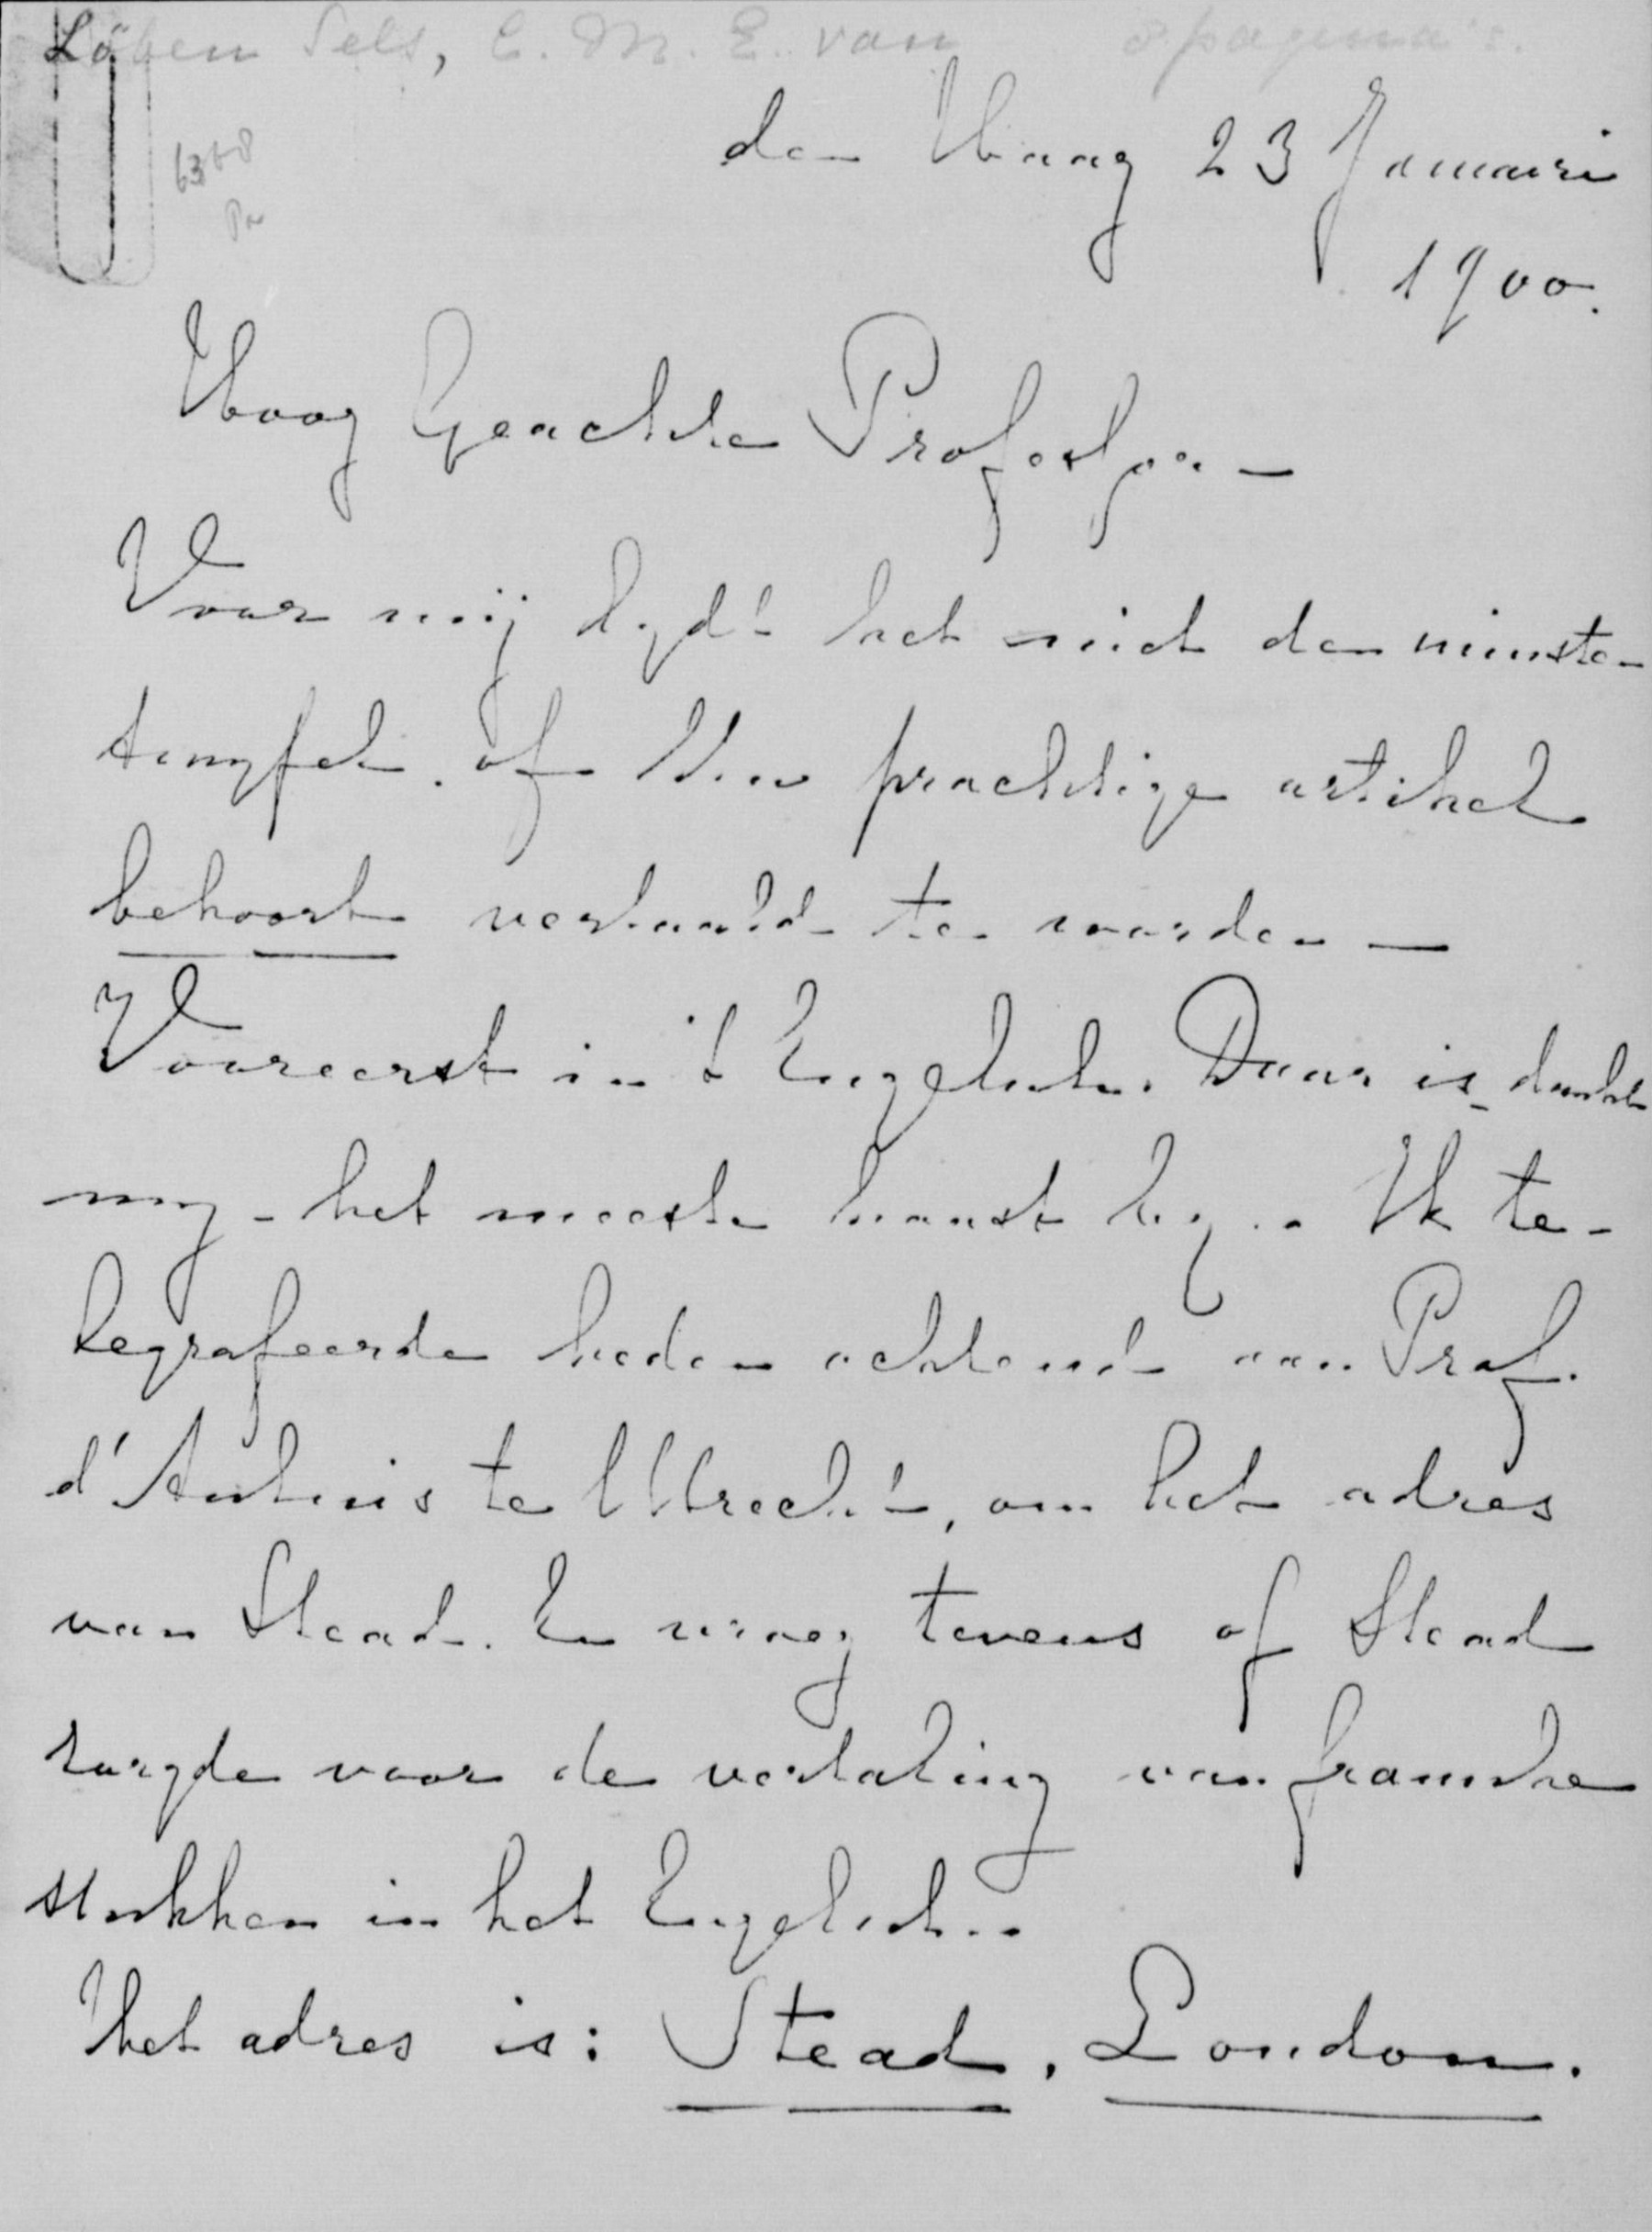 Löben Sels, E. M. E. van 8 pagina's.
den Haag 23 Januari
1900.
Hoog Geachte Professor –
Voor mij lijdt het niet den minsten
twyfel of Uw prachtige artikel
behoort vertaald te worden –
Vooreerst in 't Engelsch. Daar is dunkt
my – het meeste haast by. Ik te-
legrafeerde heden ochtend aan Prof.
d'Aulnis te Utrecht, om het adres
van Stead. En vroeg tevens of Stead
zorgde voor de vertaling van fransche
stukken in het Engelsch.
Het adres is: Stead, London.